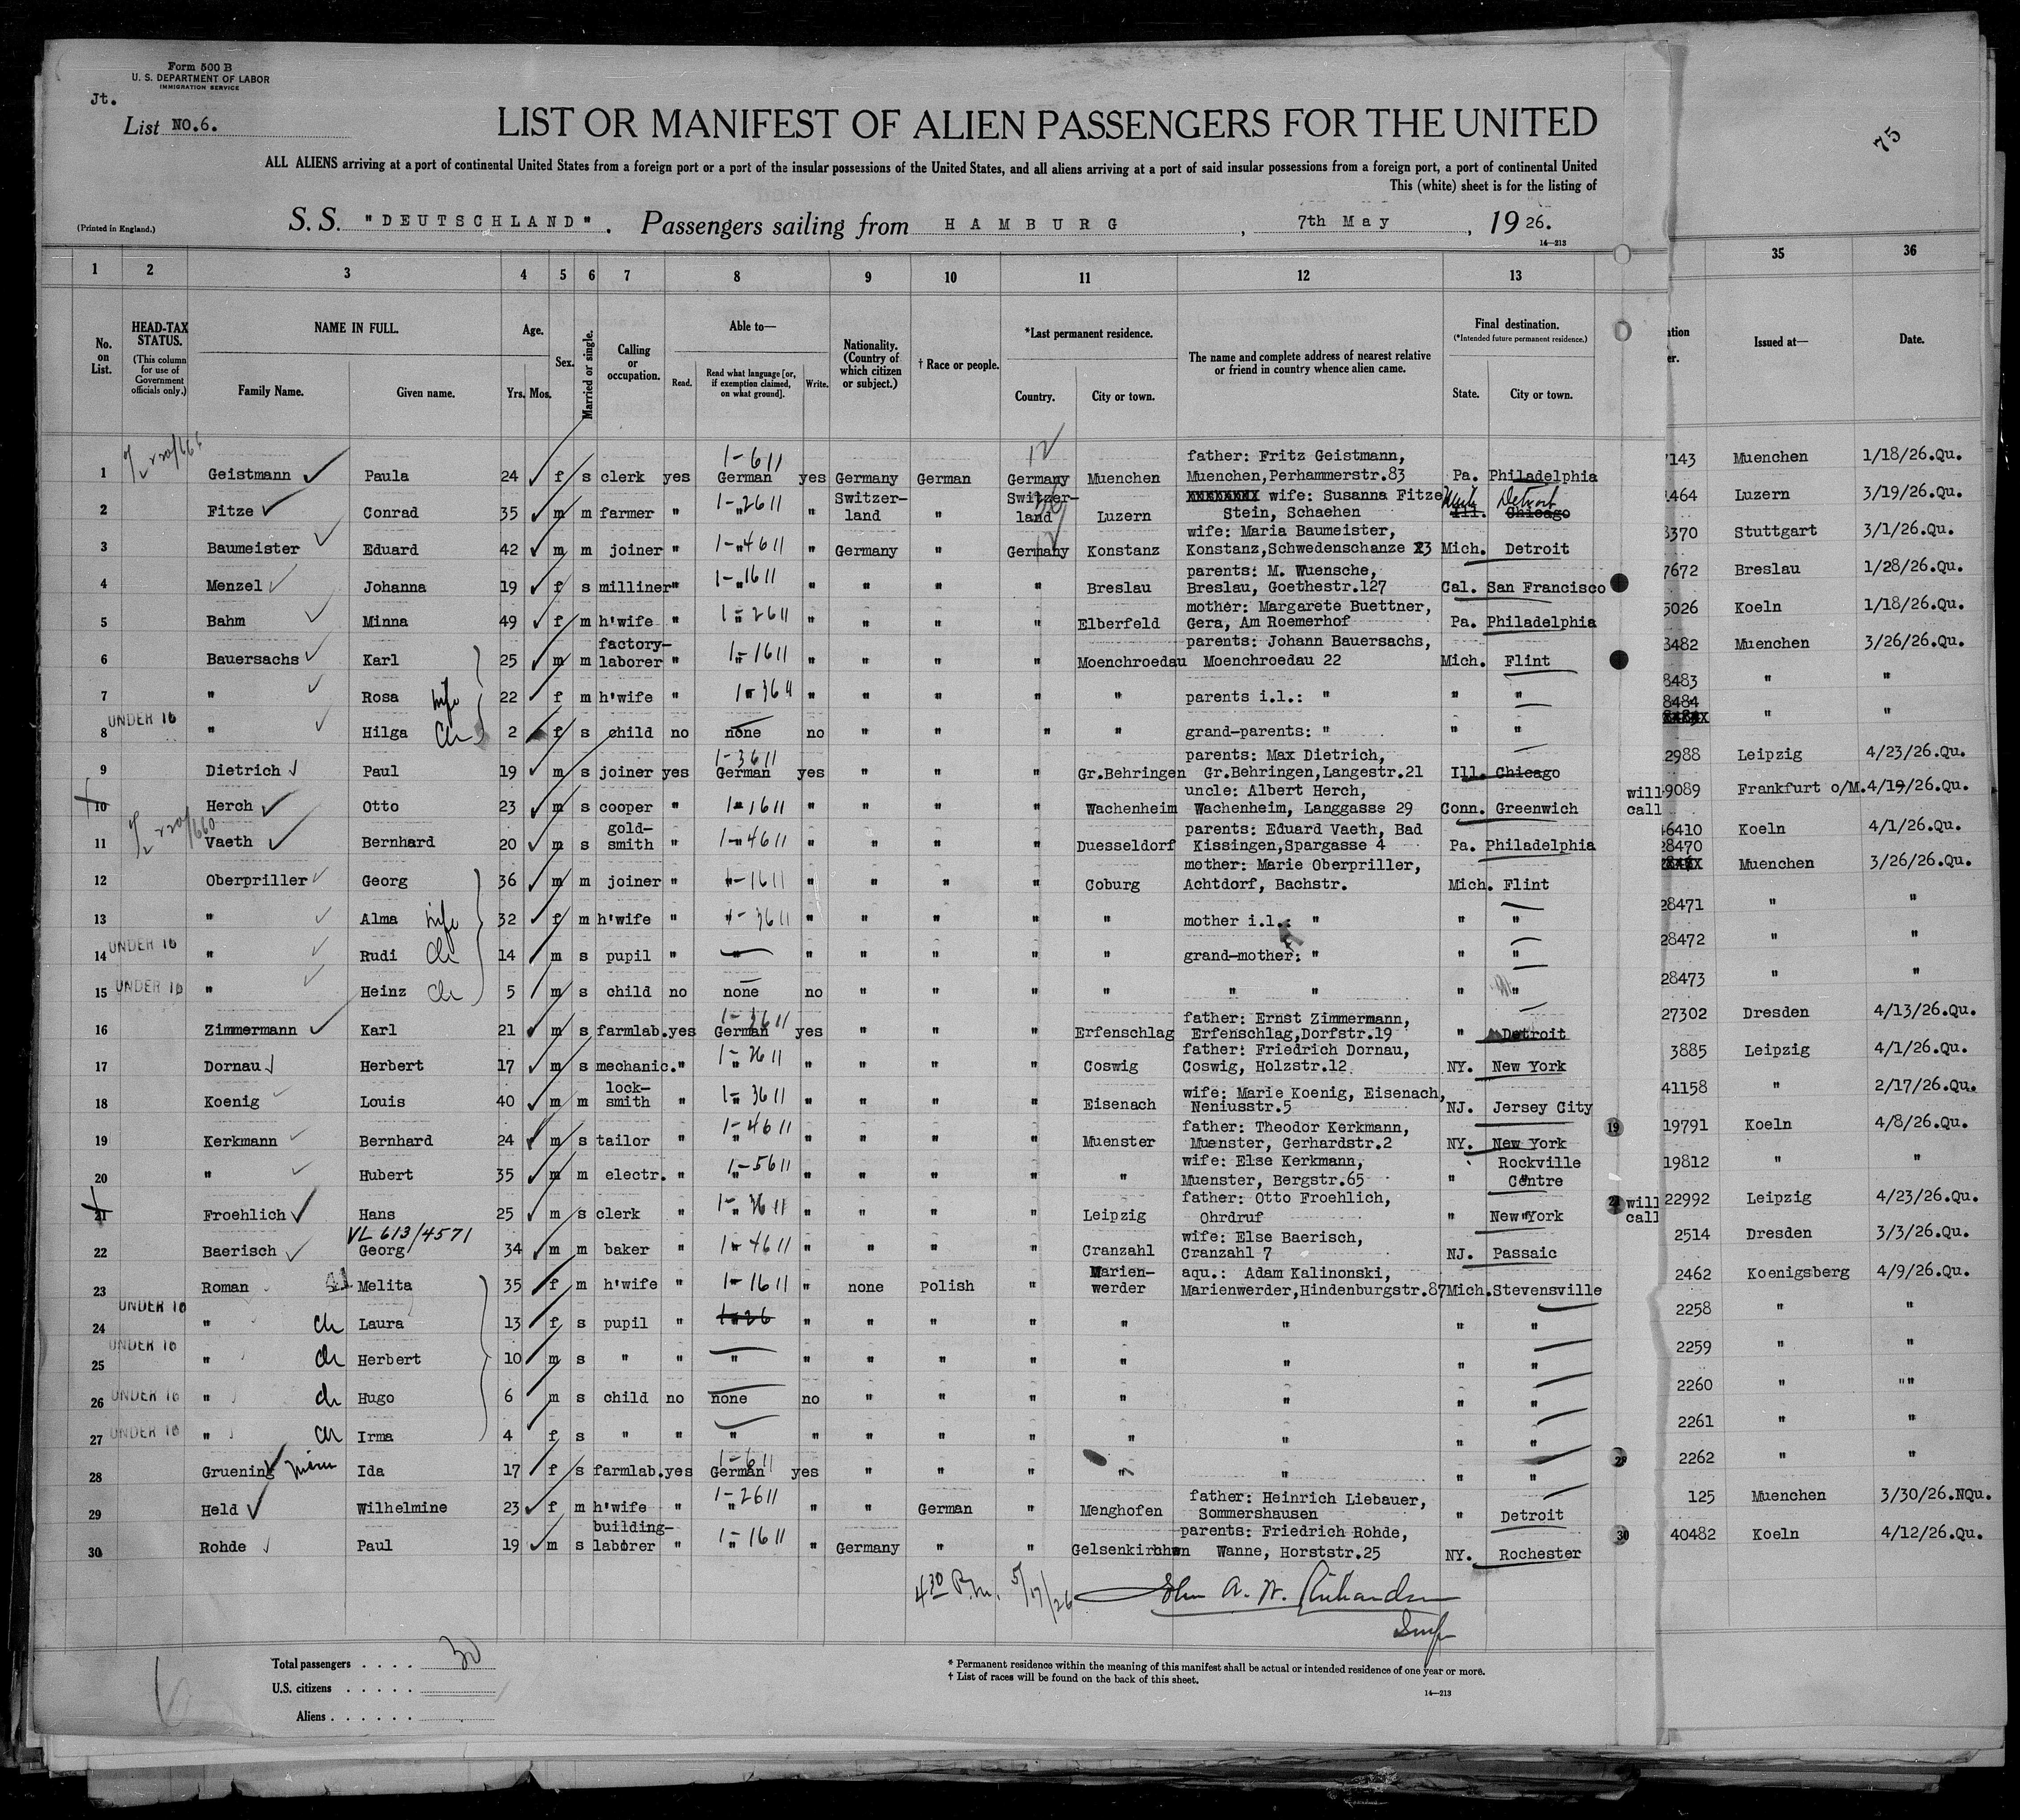 Form 500 B
U. S. DEPARTMENT OF LABOR
IMMIGRATION SERVICE
Jt.
List NO.6.
LIST OR MANIFEST OF ALIEN PASSENGERS FOR THE UNITED
75
ALL ALIENS arriving at a port of continental United States from a foreign port or a port of the insular possessions of the United States, and all aliens arriving at a port of said insular possessions from a foreign port, a port of continental United
This (white) sheet is for the listing of
(Printed in England.)
S. S. "DEUTSCHLAND". Passengers sailing from HAMBURG, 7th May, 1926.
14—213
1 2 3 4 5 6 7 8 9 10 11 12 13 35 36
No. on List.
HEAD-TAX STATUS. (This column for use of Government officials only.)
NAME IN FULL. Family Name. Given name.
Age. Yrs. Mos.
Sex.
Married or single.
Calling or occupation.
Able to— Read. Read what language [or, if exemption claimed, on what ground]. Write.
Nationality. (Country of which citizen or subject.)
† Race or people.
*Last permanent residence. Country. City or town.
The name and complete address of nearest relative or friend in country whence alien came.
Final destination. (*Intended future permanent residence.) State. City or town.
Issued at— Date.
1 Geistmann Paula 24 f s clerk yes 1-611 German yes Germany German Germany Muenchen father: Fritz Geistmann, Muenchen,Perhammerstr.83 Pa. Philadelphia 7143 Muenchen 1/18/26.Qu.
2 Fitze Conrad 35 m m farmer " 1-2611 " " Switzer-land " Switzer-land Luzern wife: Susanna Fitze Stein, Schaehen Ill. Chicago Detroit 1464 Luzern 3/19/26.Qu.
3 Baumeister Eduard 42 m m joiner " 1-4611 " " Germany " Germany Konstanz wife: Maria Baumeister, Konstanz,Schwedenschanze 23 Mich. Detroit 8370 Stuttgart 3/1/26.Qu.
4 Menzel Johanna 19 f s milliner " 1-1611 " " " " " Breslau parents: M. Wuensche, Breslau, Goethestr.127 Cal. San Francisco 7672 Breslau 1/28/26.Qu.
5 Bahm Minna 49 f m h'wife " 1-2611 " " " " " Elberfeld mother: Margarete Buettner, Gera, Am Roemerhof Pa. Philadelphia 5026 Koeln 1/18/26.Qu.
6 Bauersachs Karl 25 m m factory-laborer " 1-1611 " " " " " Moenchroedau parents: Johann Bauersachs, Moenchroedau 22 Mich. Flint 8482 Muenchen 3/26/26.Qu.
7 " Rosa wife 22 f m h'wife " 1-3611 " " " " " parents i.l.: " " " 8483 " "
UNDER 16
8 " Hilga Ch 2 f s child no none no " " " " grand-parents: " " " 8484 " "
9 Dietrich Paul 19 m s joiner yes 1-3611 German yes " " " Gr.Behringen parents: Max Dietrich, Gr.Behringen,Langestr.21 Ill. Chicago 2988 Leipzig 4/23/26.Qu.
10 Herch Otto 23 m s cooper " 1-1611 " " " " Wachenheim uncle: Albert Herch, Wachenheim, Langgasse 29 Conn. Greenwich will call 9089 Frankfurt o/M. 4/19/26.Qu.
11 Vaeth Bernhard 20 m s gold-smith " 1-4611 " " " " Duesseldorf parents: Eduard Vaeth, Bad Kissingen,Spargasse 4 Pa. Philadelphia 46410 Koeln 4/1/26.Qu.
12 Oberpriller Georg 36 m m joiner " 1-1611 " " " " Coburg mother: Marie Oberpriller, Achtdorf, Bachstr. Mich. Flint 28470 Muenchen 3/26/26.Qu.
13 " Alma wife 32 f m h'wife " 1-3611 " " " " " mother i.l.: " " " 28471 " "
14 UNDER 16 " Rudi Ch 14 m s pupil " " " " " " grand-mother: " " " 28472 " "
15 UNDER 16 " Heinz Ch 5 m s child no none no " " " " " " " " 28473 " "
16 Zimmermann Karl 21 m s farmlab. yes 1-3611 German yes " " " Erfenschlag father: Ernst Zimmermann, Erfenschlag,Dorfstr.19 " Detroit 27302 Dresden 4/13/26.Qu.
17 Dornau Herbert 17 m s mechanic. " 1-2611 " " " " " Coswig father: Friedrich Dornau, Coswig, Holzstr.12 NY. New York 3885 Leipzig 4/1/26.Qu.
18 Koenig Louis 40 m m lock-smith " 1-3611 " " " " " Eisenach wife: Marie Koenig, Eisenach, Neniusstr.5 NJ. Jersey City 41158 " 2/17/26.Qu.
19 Kerkmann Bernhard 24 m s tailor " 1-4611 " " " " " Muenster father: Theodor Kerkmann, Muenster, Gerhardstr.2 NY. New York 19 19791 Koeln 4/8/26.Qu.
20 " Hubert 35 m m electr. " 1-5611 " " " " " " wife: Else Kerkmann, Muenster, Bergstr.65 " Rockville Centre 19812 " "
21 Froehlich Hans 25 m s clerk " 1-3611 " " " " " Leipzig father: Otto Froehlich, Ohrdruf " New York will call 22992 Leipzig 4/23/26.Qu.
VL 613/4571
22 Baerisch Georg 34 m m baker " 1-4611 " " " " Cranzahl wife: Else Baerisch, Cranzahl 7 NJ. Passaic 2514 Dresden 3/3/26.Qu.
23 Roman Melita 35 f m h'wife " 1-1611 " none Polish " Marien-werder aqu.: Adam Kalinonski, Marienwerder,Hindenburgstr.87 Mich. Stevensville 2462 Koenigsberg 4/9/26.Qu.
UNDER 16
24 " Ch Laura 13 f s pupil " " " " " " " " " 2258 " "
UNDER 16
25 " Ch Herbert 10 m s " " " " " " " " " " " 2259 " "
26 UNDER 16 " Ch Hugo 6 m s child no none no " " " " " " " 2260 " ""
27 UNDER 16 " Ch Irma 4 f s " " " " " " " " " " " 2261 " "
28 Gruening Ida 17 f s farmlab. yes 1-611 German yes " " " " " " " 2262 " "
29 Held Wilhelmine 23 f m h'wife " 1-2611 " " " German " Menghofen father: Heinrich Liebauer, Sommershausen " Detroit 125 Muenchen 3/30/26.NQu.
30 Rohde Paul 19 m s building-laborer " 1-1611 " " Germany " " Gelsenkirchen parents: Friedrich Rohde, Wanne, Horststr.25 NY. Rochester 30 40482 Koeln 4/12/26.Qu.
4 30 P.m. 5/17/26 John A. W. Richardson
Total passengers . . . . 30
U.S. citizens . . . . .
Aliens . . . . . .
* Permanent residence within the meaning of this manifest shall be actual or intended residence of one year or more.
† List of races will be found on the back of this sheet.
14—213